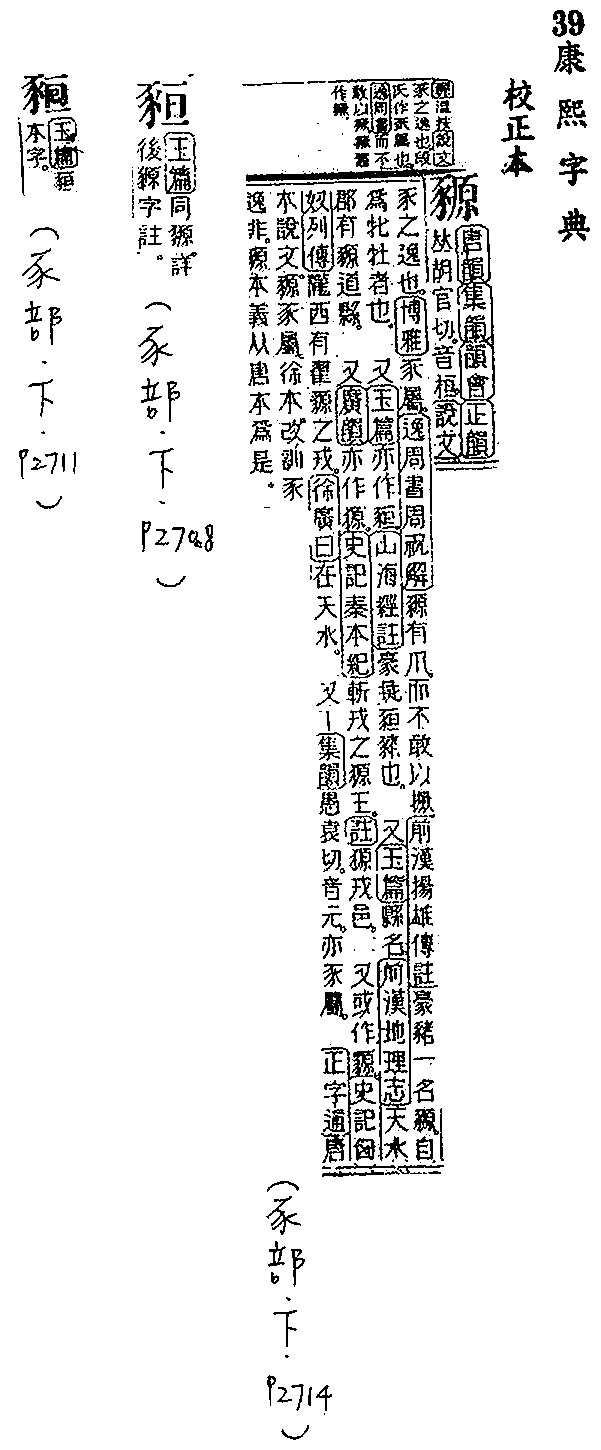 39 康熙字典
校正本
豲
唐韻集韻韻會正韻
𠀤胡官切。音桓。說文
豕之逸也。博雅豕屬。逸周書周祝解豲有爪。而不敢以撅。前漢揚雄傳註豪豬一名豲。自
爲牝牡者也。 又玉篇亦作。山海經註豪彘也。 又玉篇縣名。前漢地理志天水
郡有豲道縣。 又廣韻亦作獂。史記秦本紀斬戎之獂王。註獂戎邑。 又或作。史記匈
奴列傳隴西有翟獂之戎。徐廣曰在天水。 又集韻愚袁切。音元。亦豕屬。 正字通唐
本說文豲豕屬。徐本改訓豕
逸非。豲本義从唐本爲是。
按說文
豕之逸也段
氏作豕屬也
逸周書而不
敢以
作
(豕部.下.P2714)
玉篇同豲。詳
後豲字註。
(豕部.下.P2708)
玉篇
本字。
(豕部.下.P2711)